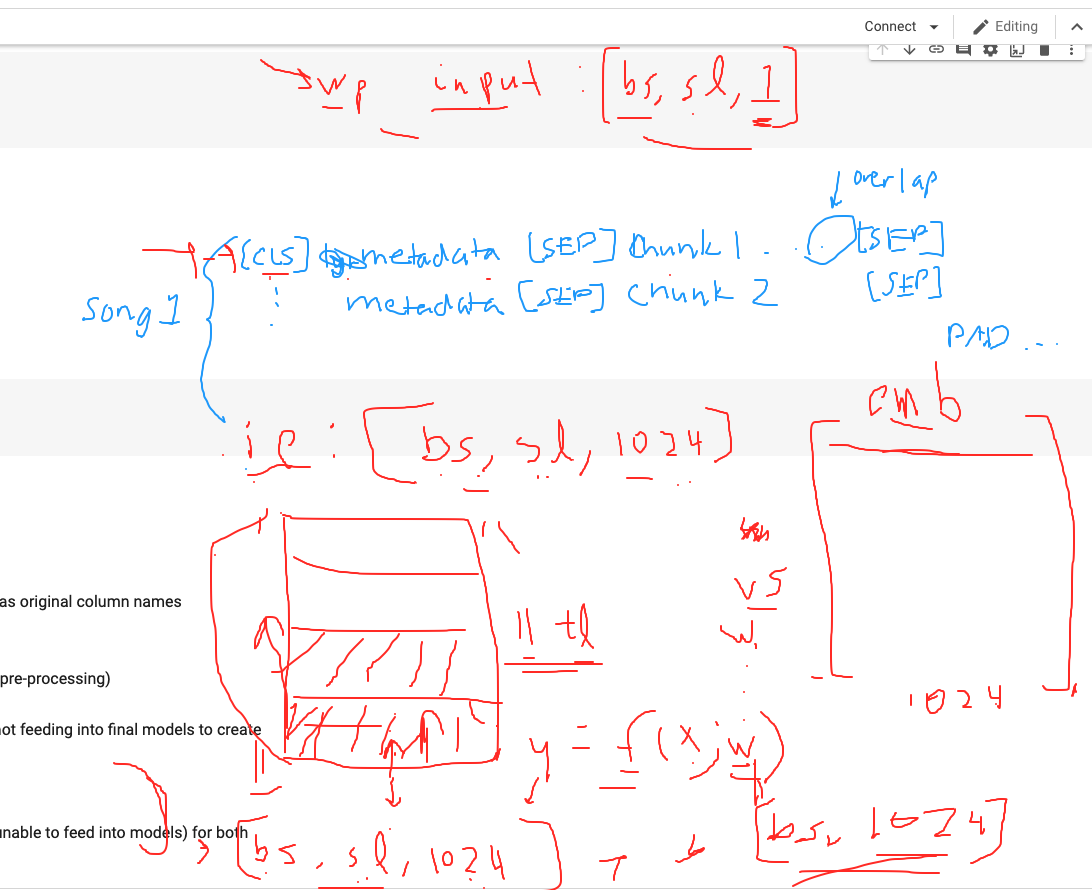 Connect Editing
wp input : [bs, sl, 1]
overlap
[CLS] metadata [SEP] Chunk 1 . . . [SEP]
Song 1 : metadata [SEP] Chunk 2 [SEP]
PAD ...
emb
ip : [bs, sl, 1024]
as original column names
vs
11 tl
w.
pre-processing)
1024
ot feeding into final models to create
y = f(x; w)
unable to feed into models) for both
[bs, sl, 1024] → [bs, 1024]